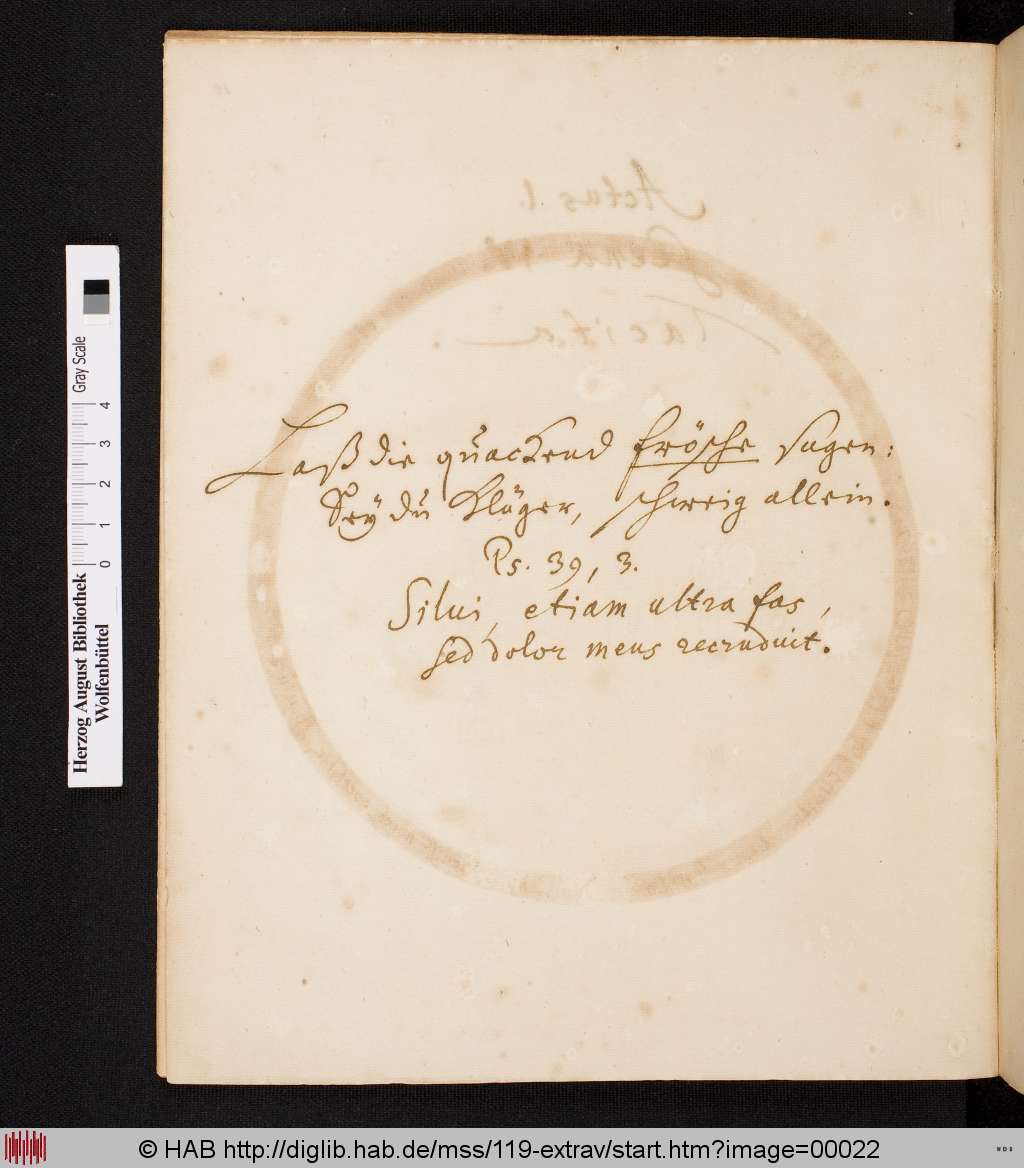 Laß die quackend frösche sagen:
Sey du Klüger, schweig allein.
Ps. 39, 3.
Silui, etiam ultra fas,
sed dolor meus recruduit.
Actus 1.
Scena
Tacita.
Herzog August Bibliothek
Wolfenbüttel
0 1 2 3 4
Gray Scale
© HAB http://diglib.hab.de/mss/119-extrav/start.htm?image=00022